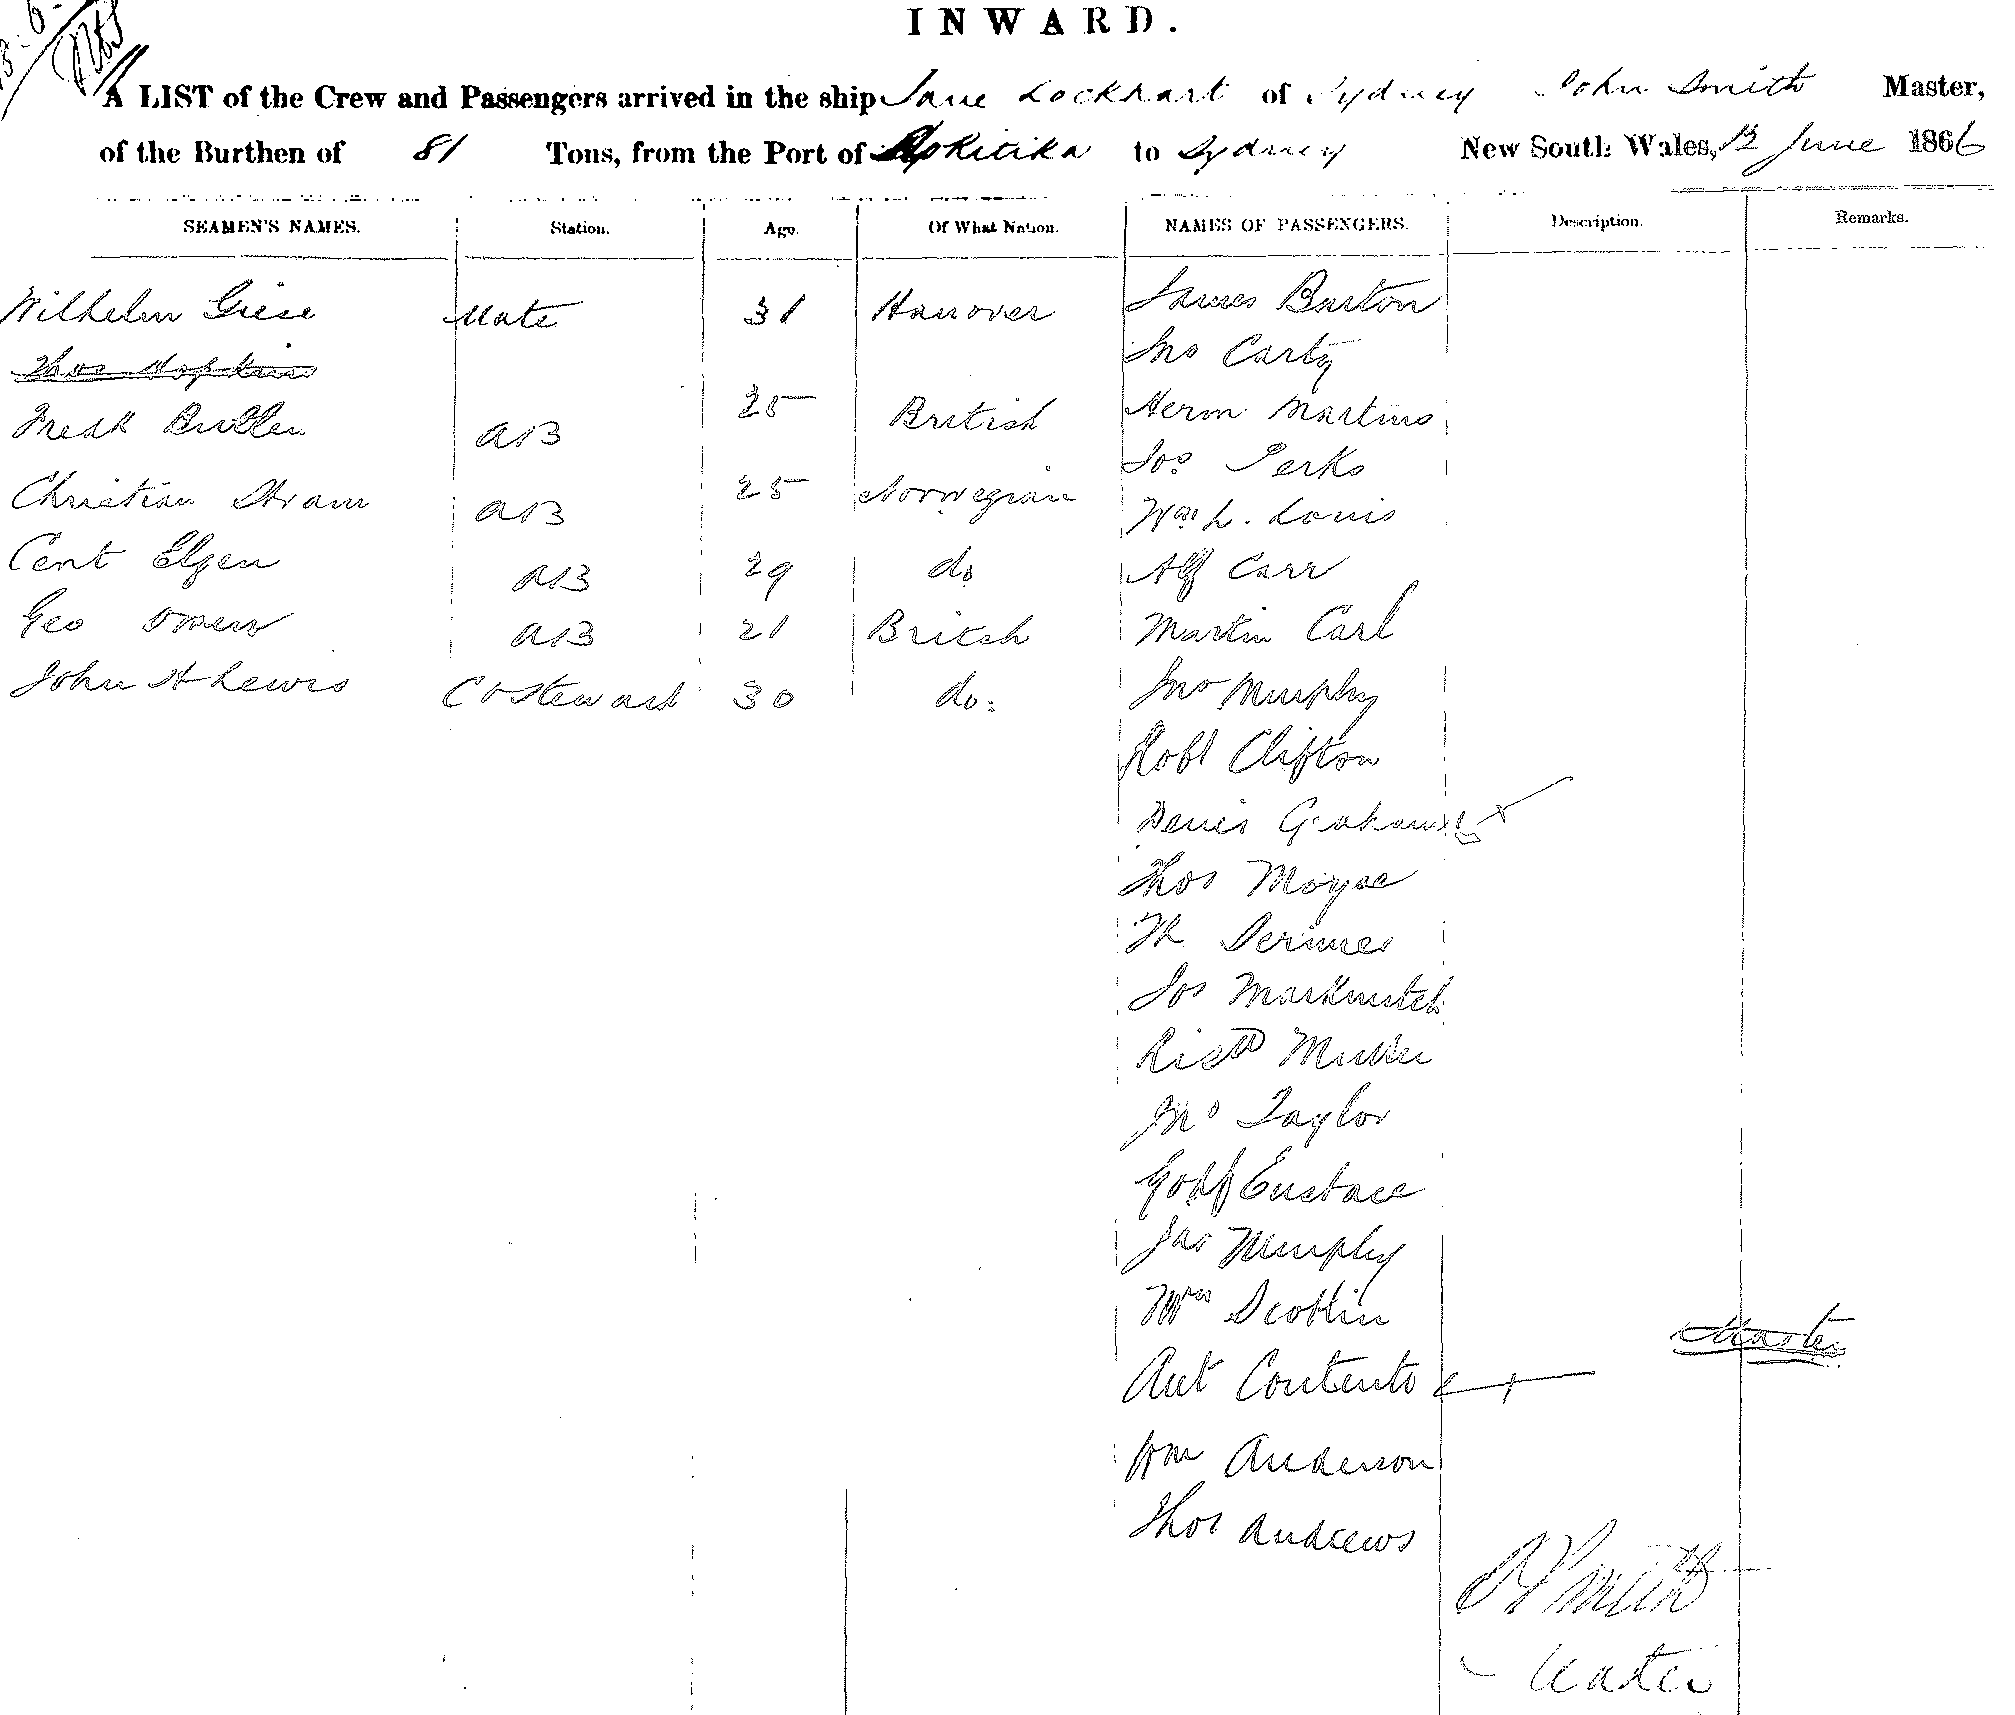 INWARD.
A LIST of the Crew and Passengers arrived in the ship Jane Lockhart of Sydney John Smith Master,
of the Burthen of 81 Tons, from the Port of Hokitika to Sydney New South Wales, 13 June 1866
SEAMEN'S NAMES. Station. Age. Of What Nation. NAMES OF PASSENGERS. Description. Remarks.
Wilhelm Giese Mate 31 Hanover James Burton
Thos Hopkins Jno Carty
Fredk Bullen AB 25 British Herm Martins
Jos Perks
Christian Stram AB 25 Norwegian Wm L. Louis
Cent Elgen AB 29 do Alf Carr
Geo Owens AB 21 British Martin Carl
John H Lewis C & Steward 30 do. Jno Murphy
Robt Clifton
Denis Graham
Thos Moyse
Th
Jos
Muller
Jno Taylor
Godf Eustace
Jas Murphy
Wm
Master
Ant Contento
Wm Anderson
Thos Andrews
J Smith
Master